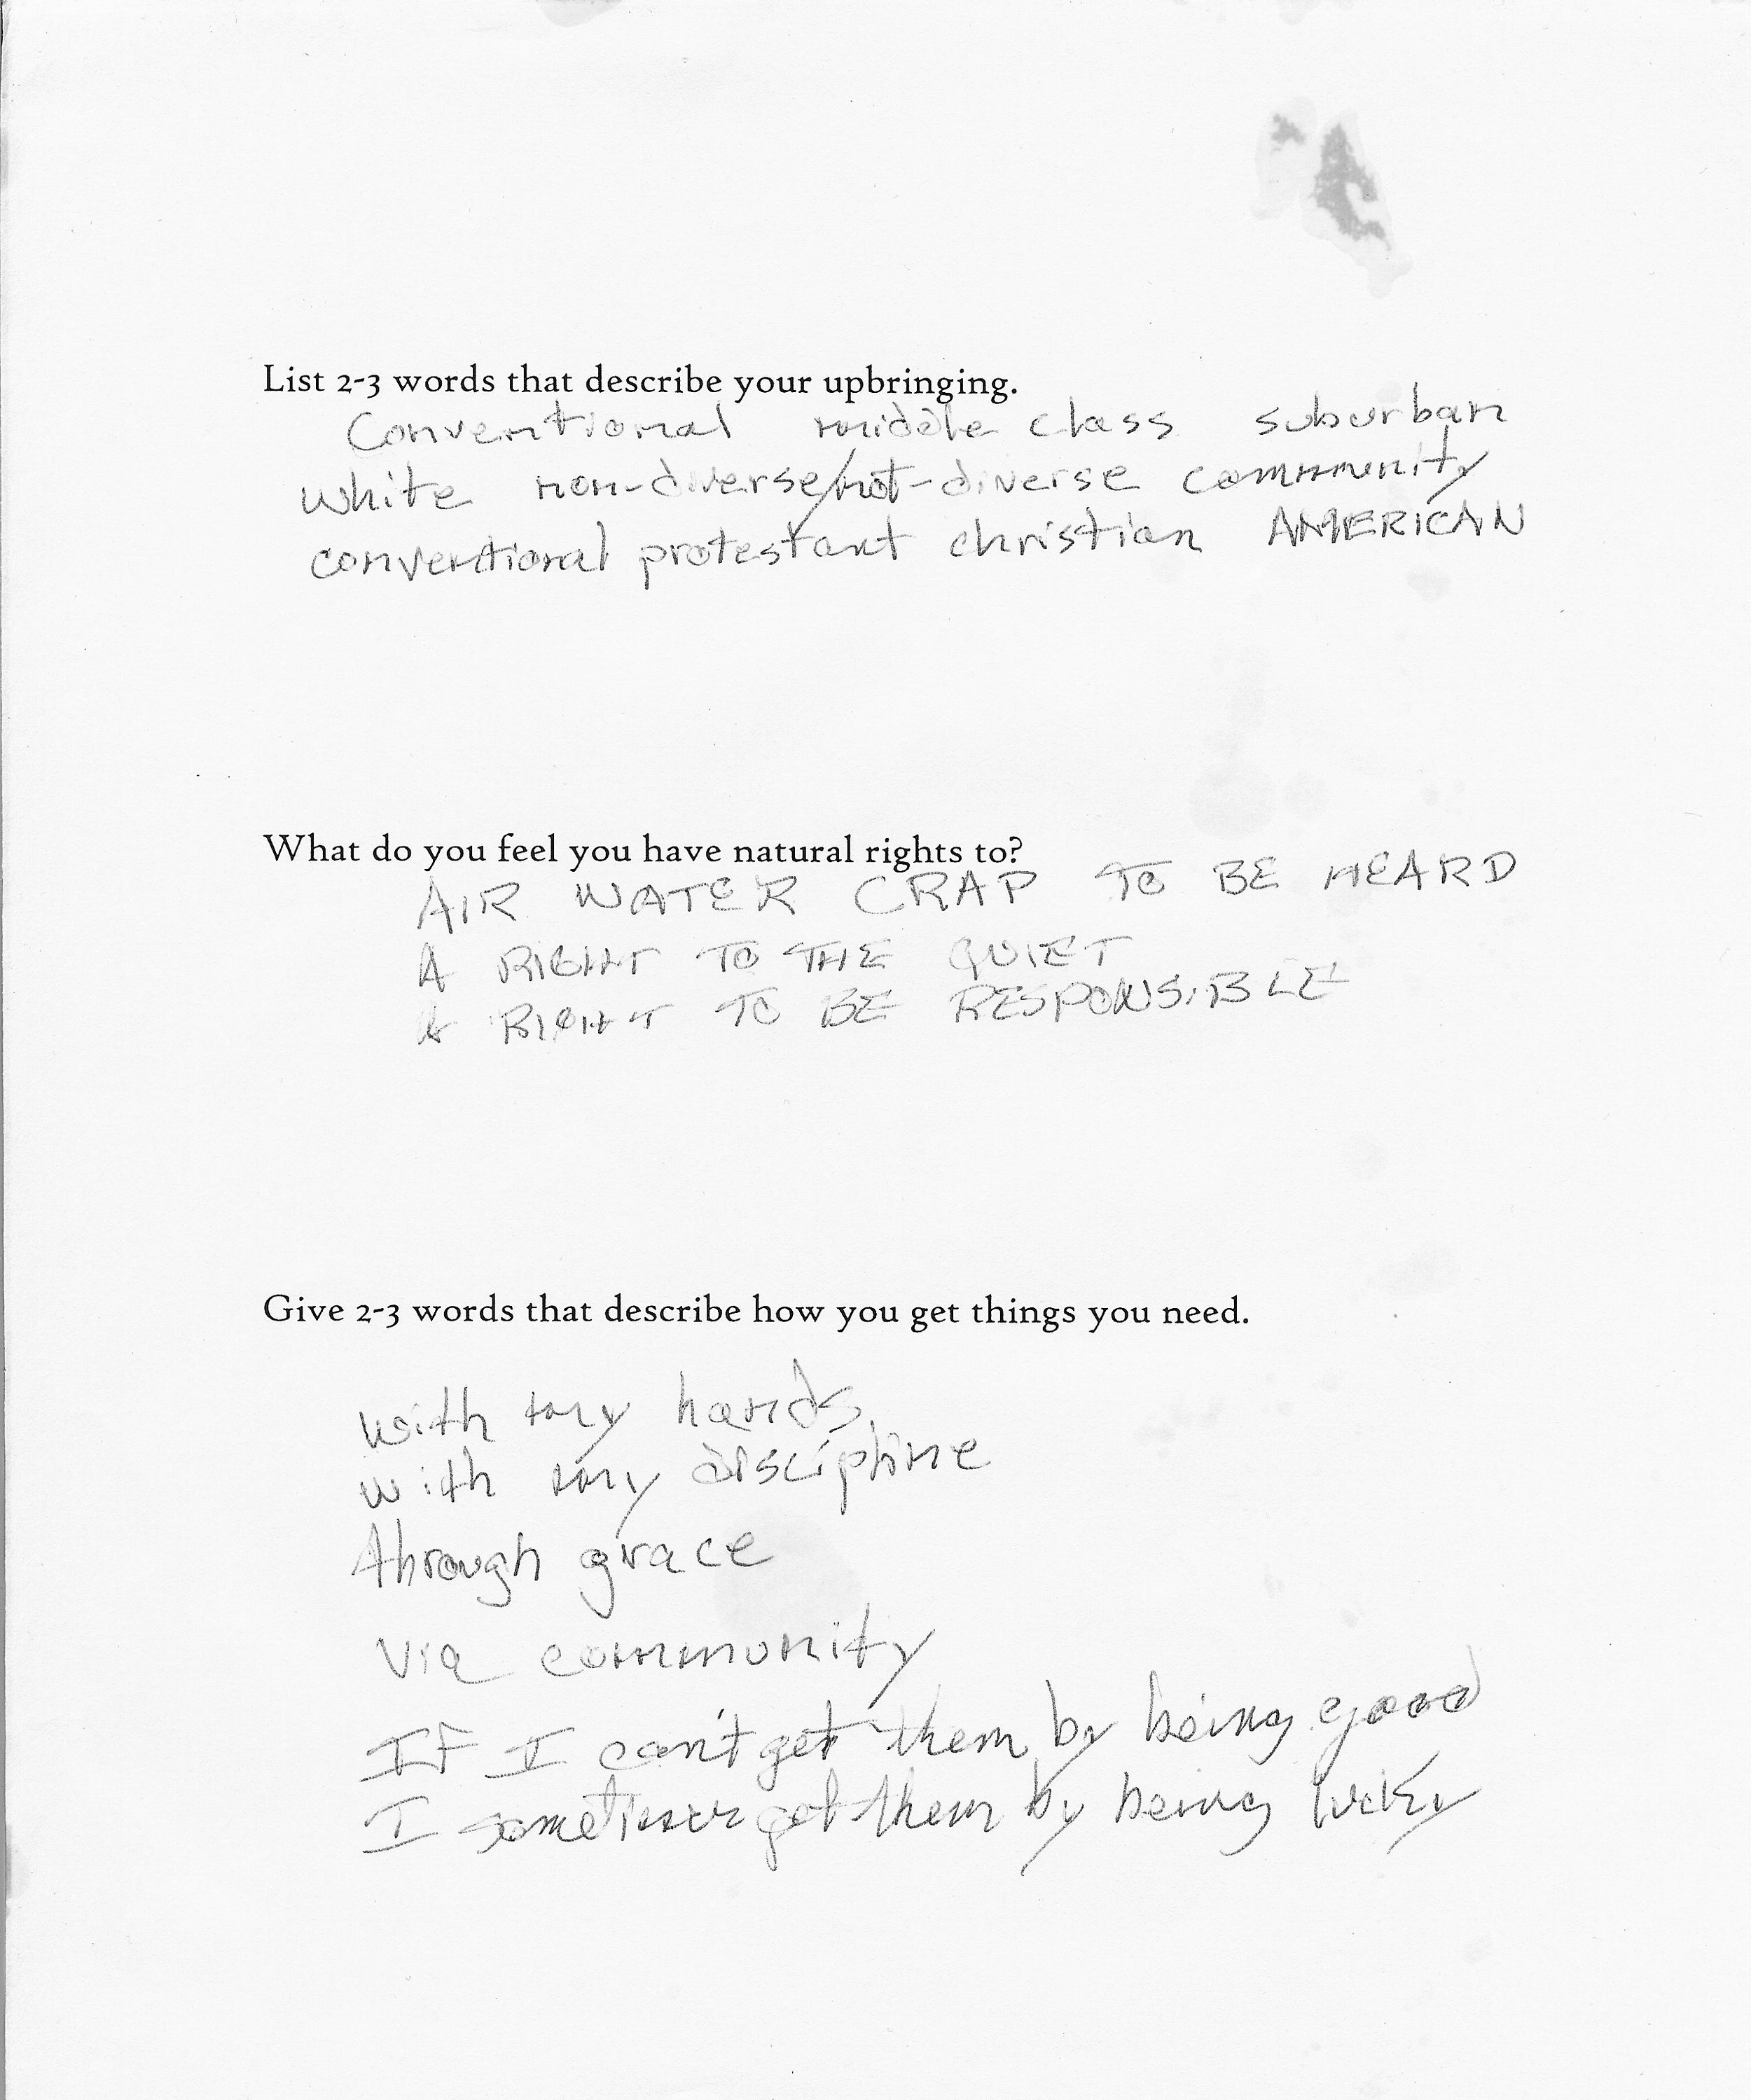 List 2-3 words that describe your upbringing.
Conventional middle class suburban
White non-diverse/not-diverse community
conventional protestant christian AMERICAN
What do you feel you have natural rights to?
AIR WATER CRAP TO BE HEARD
A RIGHT TO THE QUIET
A RIGHT TO BE RESPONSIBLE
Give 2-3 words that describe how you get things you need.
with my hands,
with my discipline
through grace
via community
If I can't get them by being good
I sometimes get them by being lucky